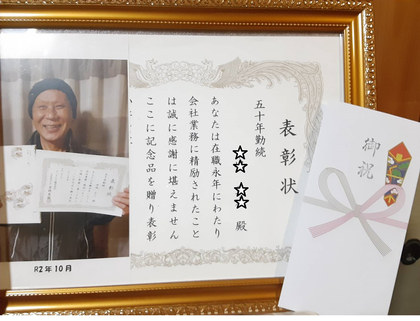 表彰状
五十年勤続
☆☆ ☆☆ 殿
あなたは在職永年にわたり
会社業務に精励されたこと
は誠に感謝に堪えません
ここに記念品を贈り表彰
御祝
R2年10月